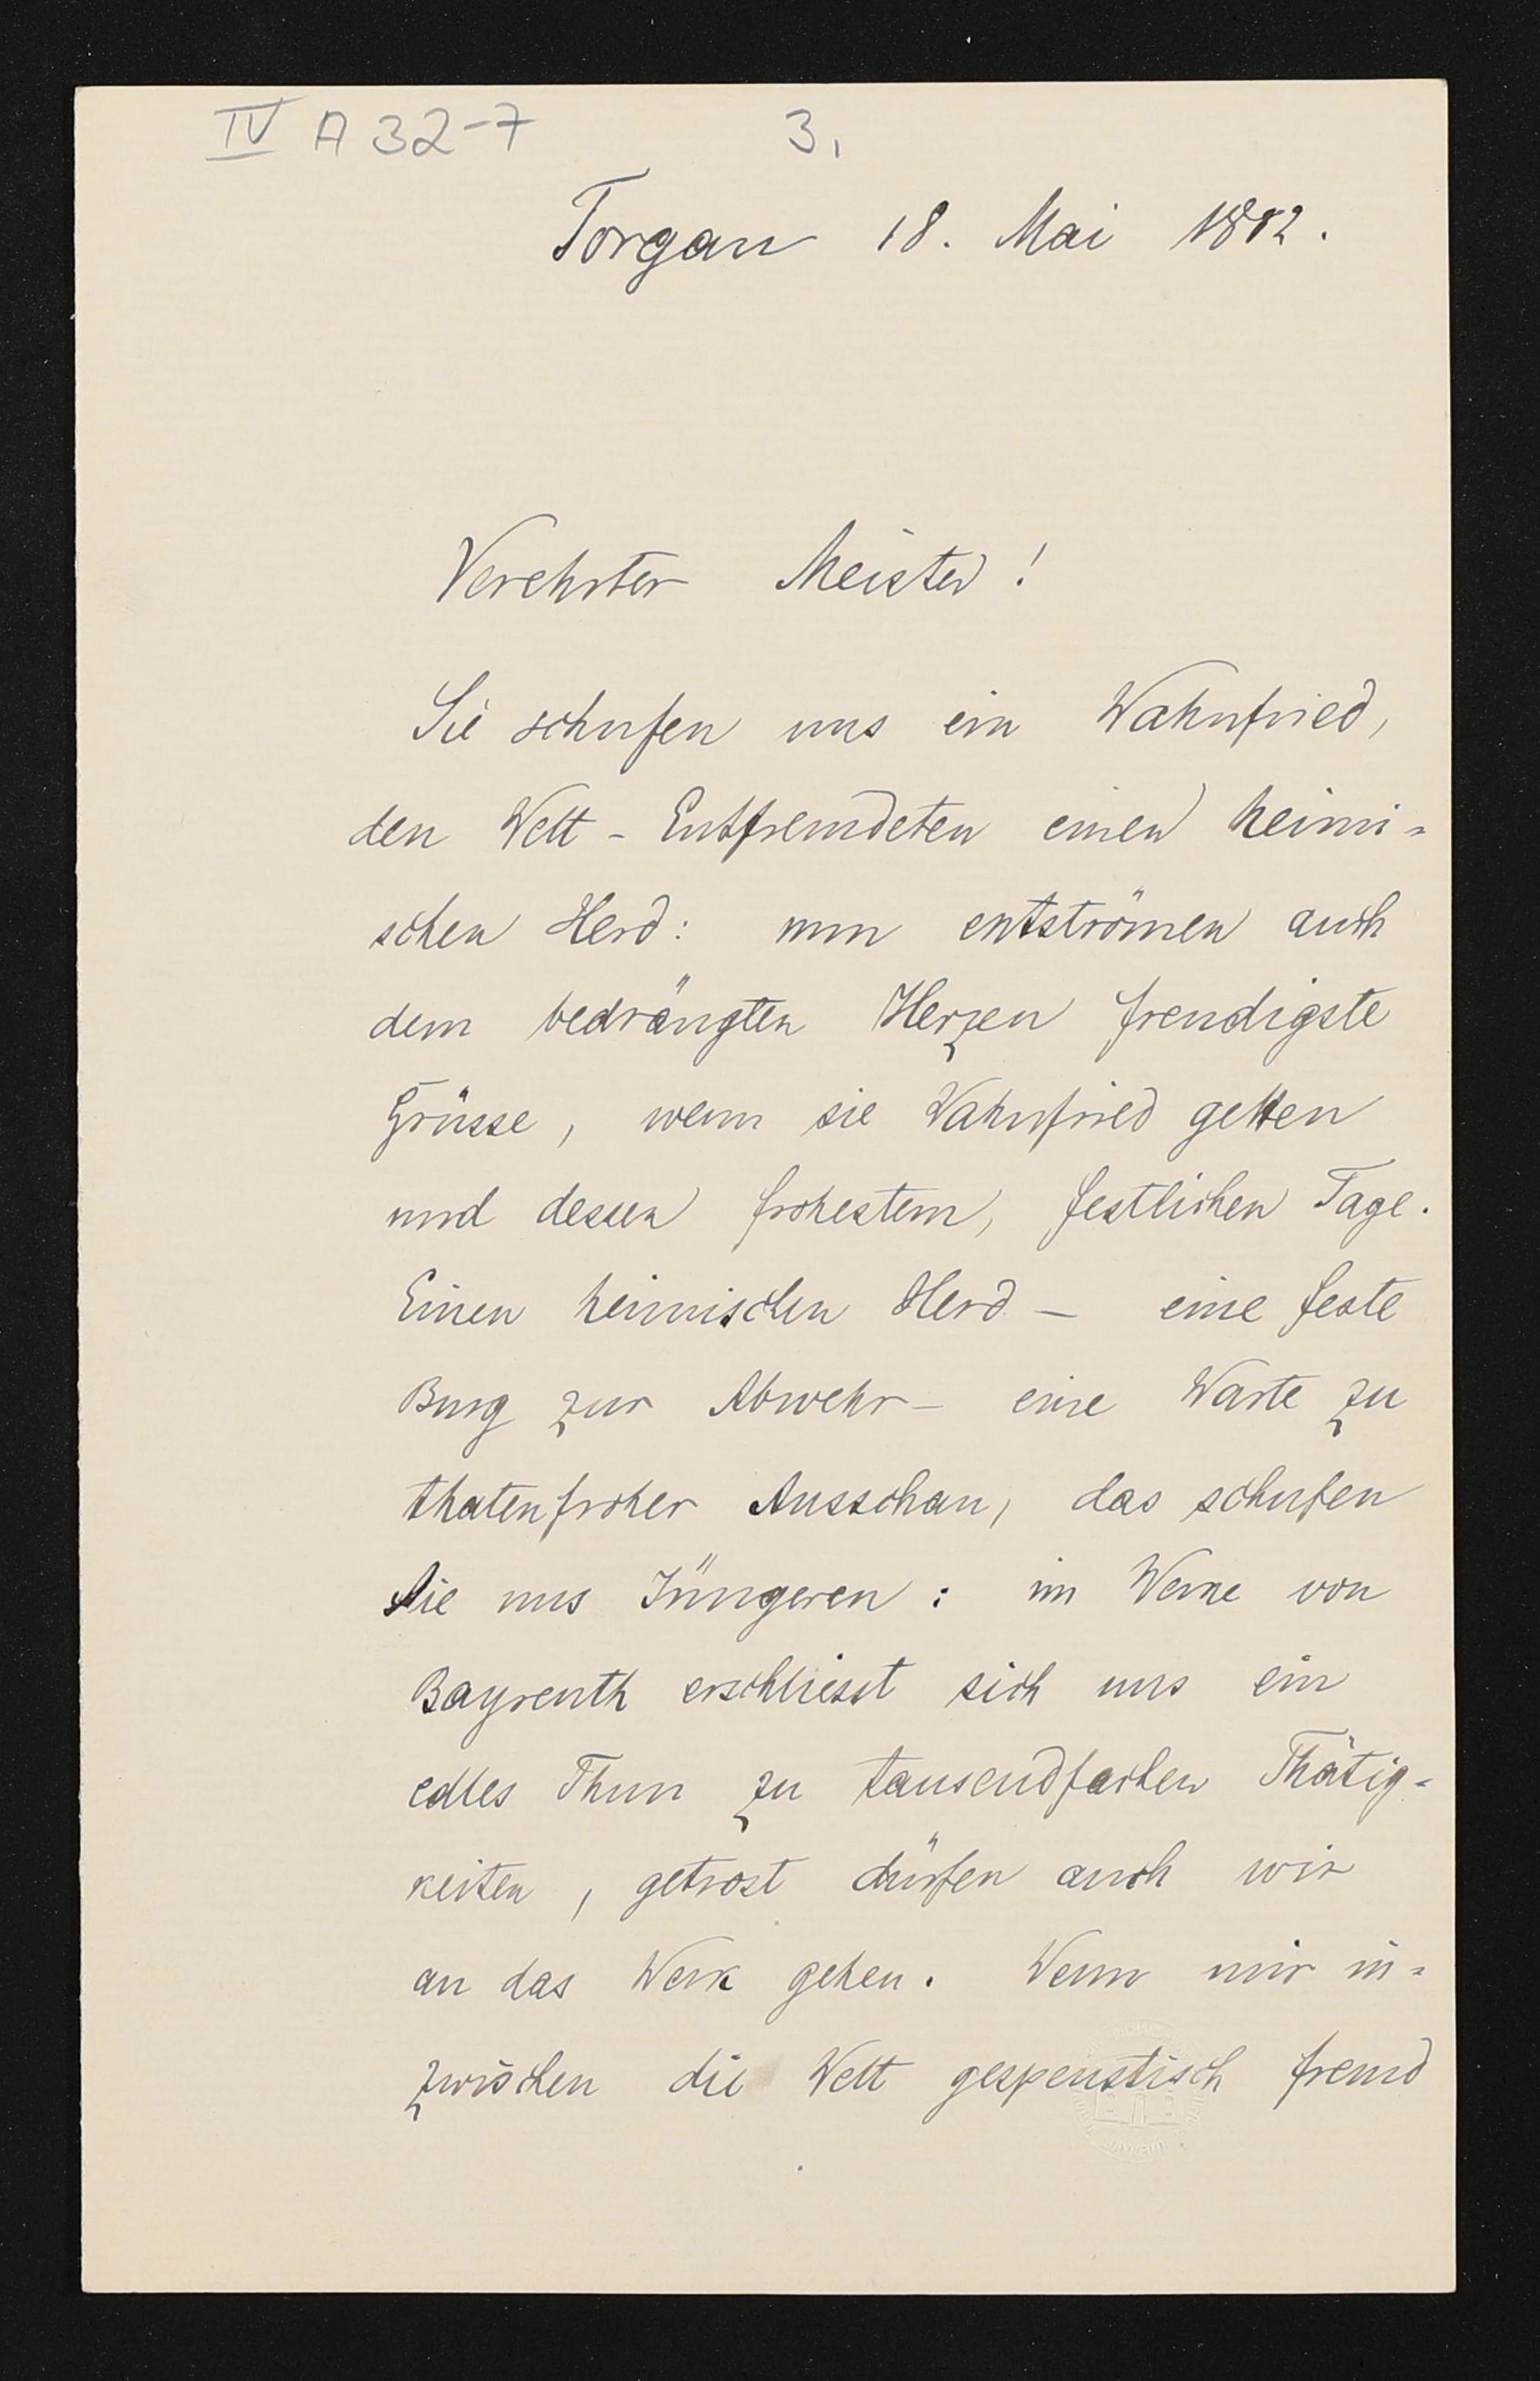 IV A 32-7 3.
Torgau 18. Mai 1882.
Verehrter Meister!
Sie schufen uns ein Wahnfried,
den Welt-Entfremdeten einen heimi-
schen Herd: nun entströmen auch
dem bedrängten Herzen freudigste
Grüsse, wenn sie Wahnfried gelten
und dessen frohestem, festlichen Tage.
Einen heimischen Herd — eine feste
Burg zur Abwehr — eine Warte zu
thatenfroher Ausschau, das schufen
Sie uns Jüngeren: im Werke von
Bayreuth erschliesst sich uns ein
edles Thun zu tausendfachen Thätig-
keiten, getrost dürfen auch wir
an das Werk gehen. Wenn mir in-
zwischen die Welt gespenstisch fremd